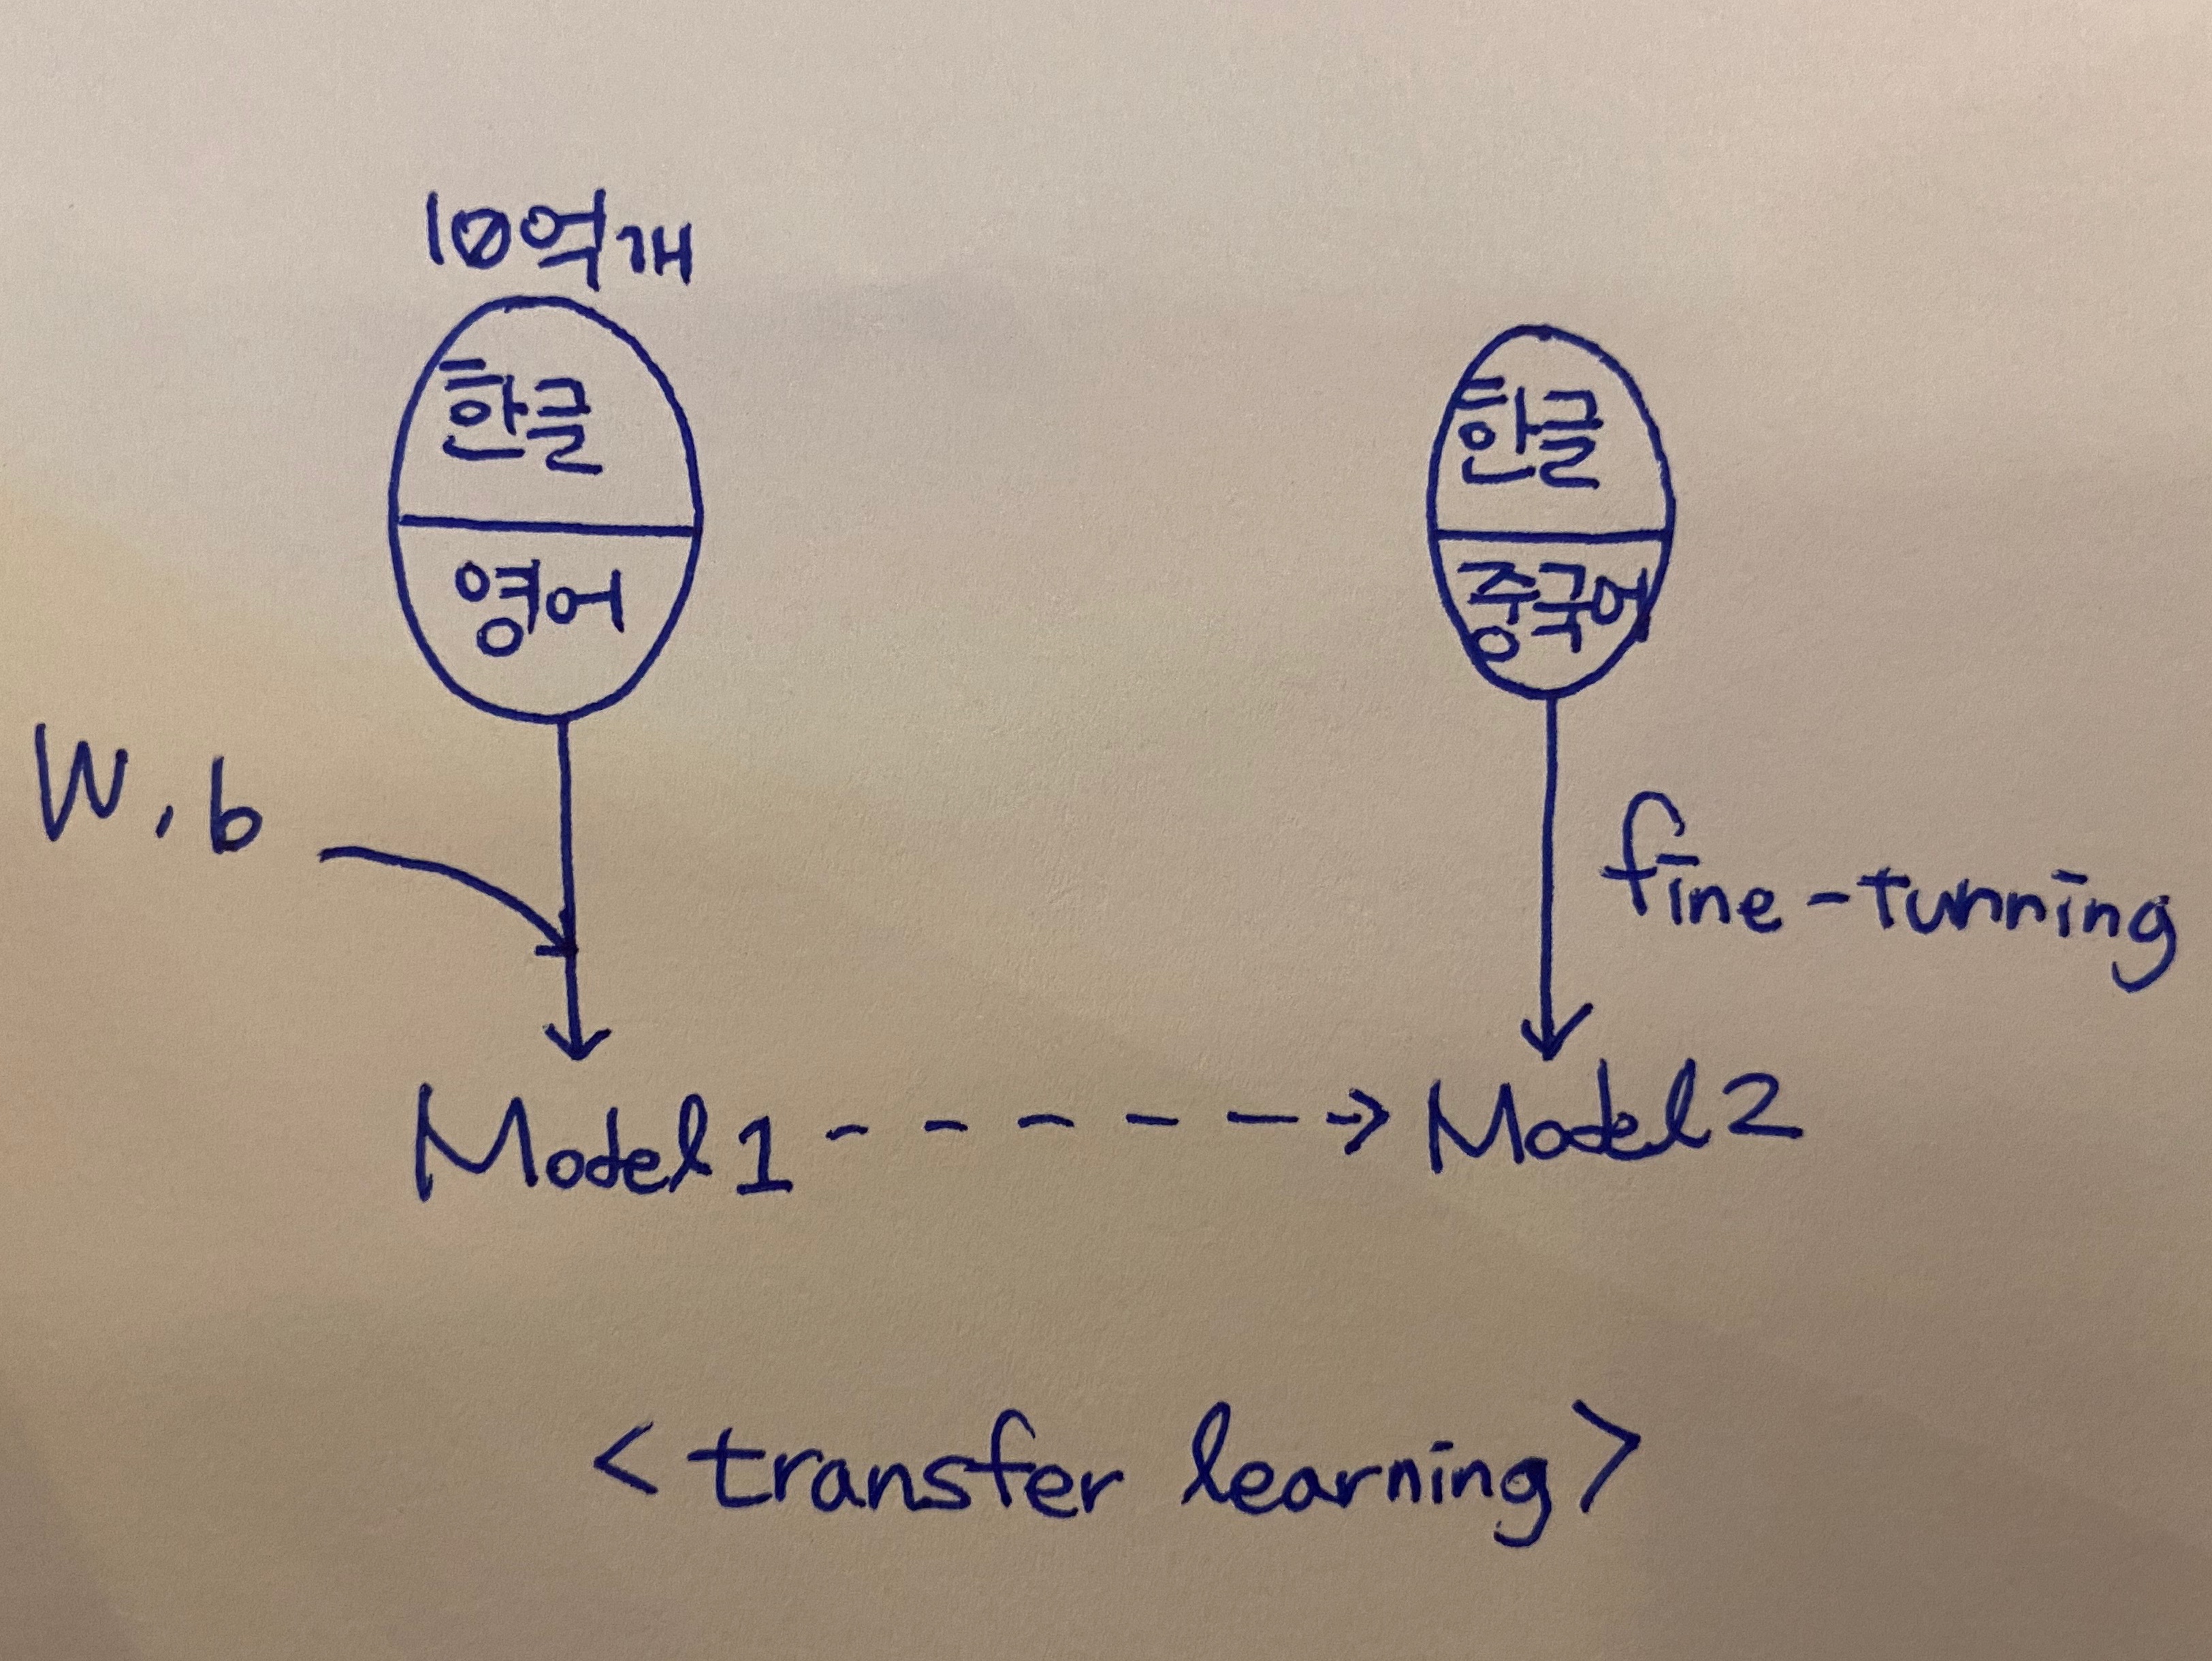 10억개
한글
영어
W, b
Model 1
한글
중국어
fine-tunning
Model 2
<transfer learning>